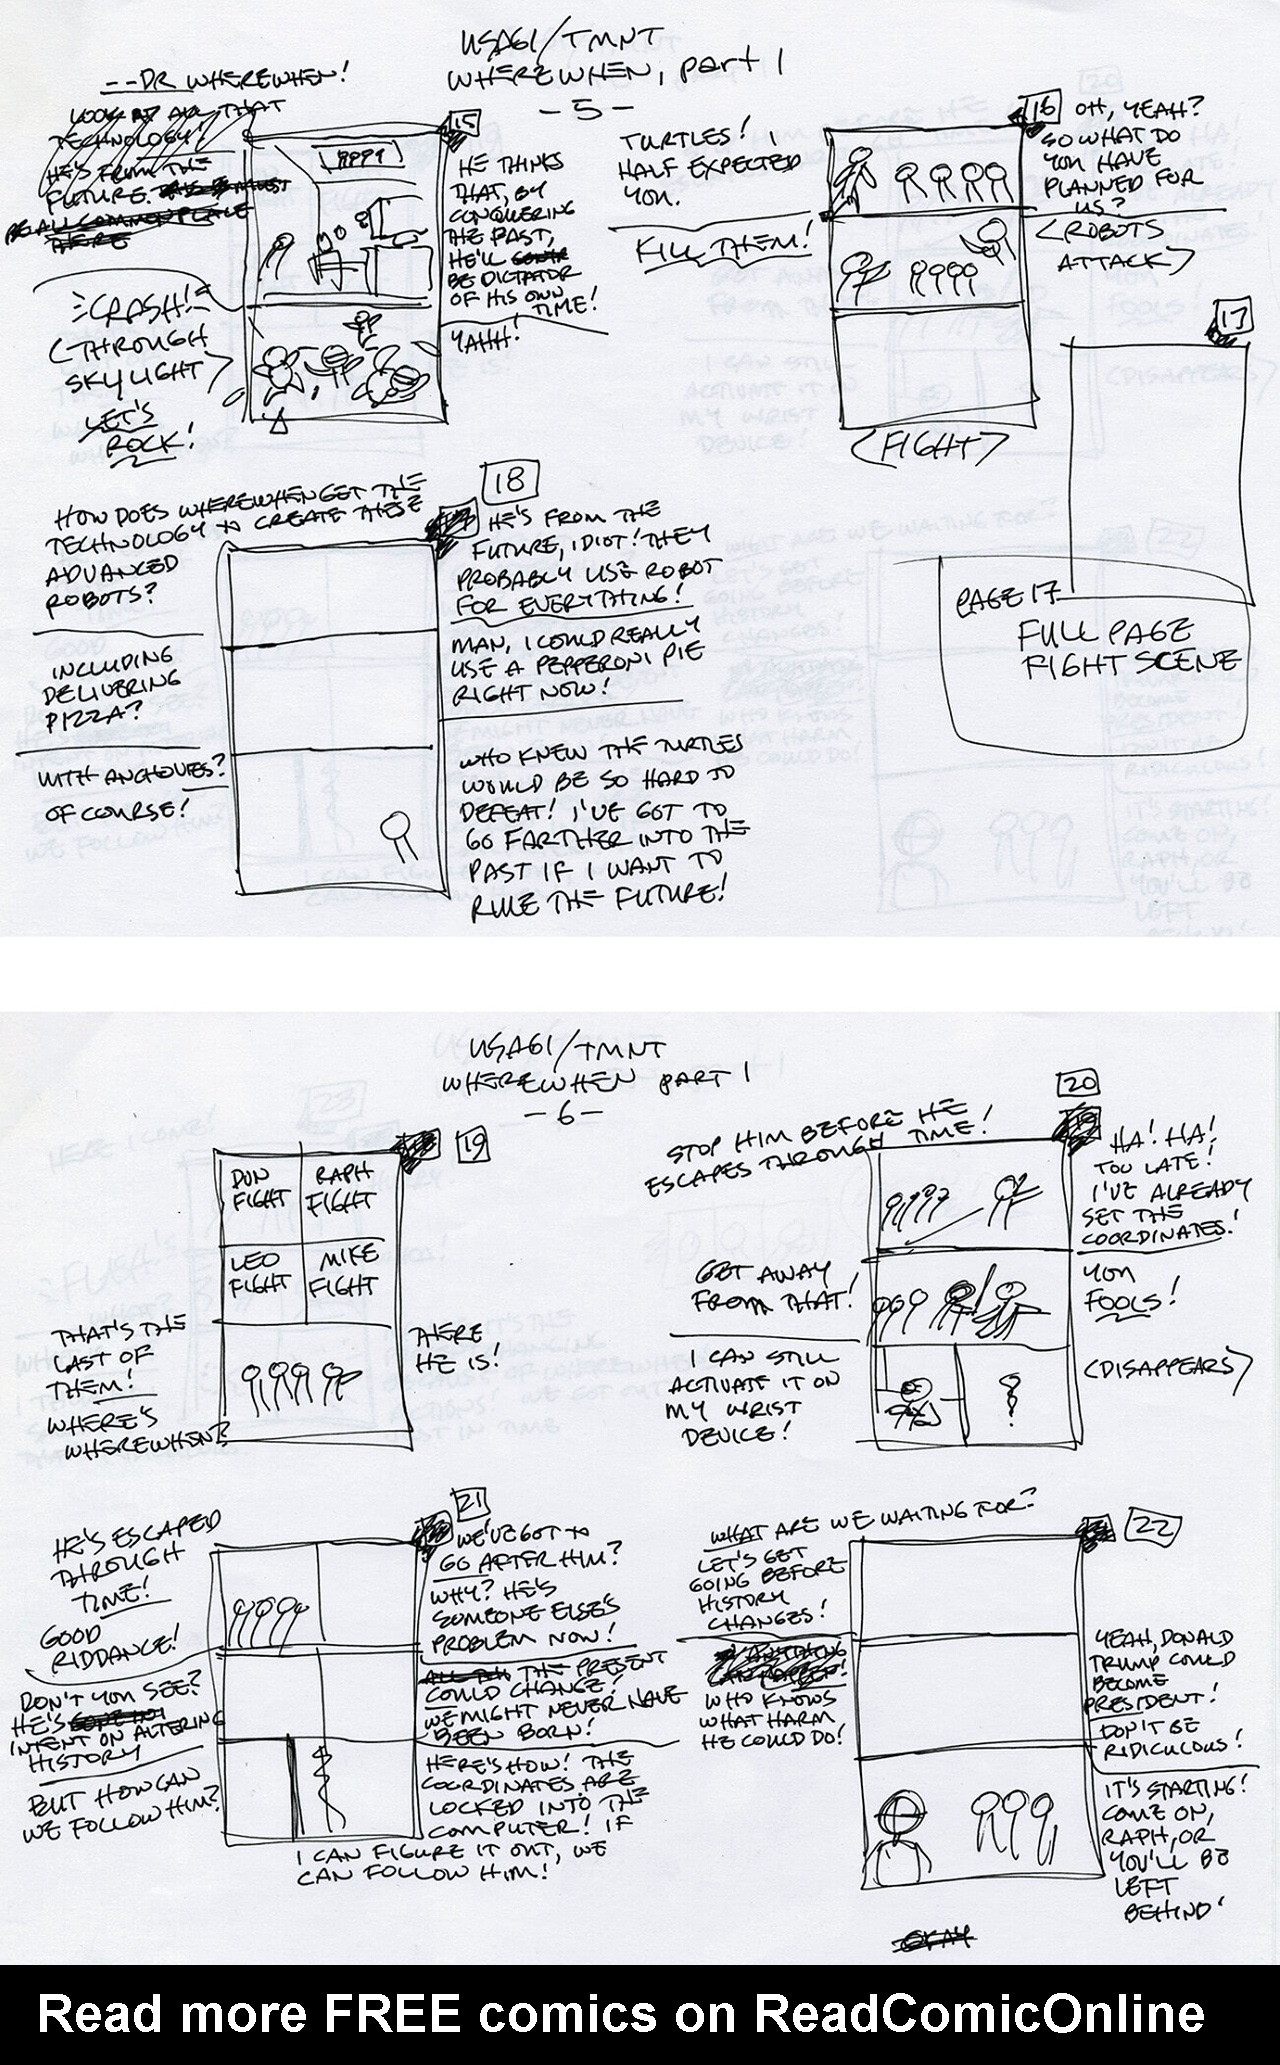 USAGI/TMNT
WHEREWHEN, part 1
- 5 -
--DR WHEREWHEN!
LOOK AT ALL THAT
TECHNOLOGY!
HE'S FROM THE
FUTURE.
BE ALL COMMONPLACE
THERE
15
HE THINKS
THAT, BY
CONQUERING
THE PAST,
HE'LL
BE DICTATOR
OF HIS OWN
TIME!
CRASH!
(THROUGH
SKYLIGHT)
LET'S
ROCK!
YAHH!
TURTLES!
HALF EXPECTED
YOU.
KILL THEM!
16
OH, YEAH?
SO WHAT DO
YOU HAVE
PLANNED FOR
US?
(ROBOTS
ATTACK)
(FIGHT)
17
PAGE 17
FULL PAGE
FIGHT SCENE
18
HOW DOES WHEREWHEN GET THE
TECHNOLOGY TO CREATE THESE
ADVANCED
ROBOTS?
HE'S FROM THE
FUTURE, IDIOT! THEY
PROBABLY USE ROBOT
FOR EVERYTHING!
INCLUDING
DELIVERING
PIZZA?
MAN, I COULD REALLY
USE A PEPPERONI PIE
RIGHT NOW!
WITH ANCHOVIES?
OF COURSE!
WHO KNEW THE TURTLES
WOULD BE SO HARD TO
DEFEAT! I'VE GOT TO
GO FARTHER INTO THE
PAST IF I WANT TO
RULE THE FUTURE!
USAGI/TMNT
WHEREWHEN part 1
- 6 -
19
DON
FIGHT
RAPH
FIGHT
LEO
FIGHT
MIKE
FIGHT
THAT'S THE
LAST OF
THEM!
WHERE'S
WHEREWHEN?
THERE
HE IS!
20
STOP HIM BEFORE HE
ESCAPES THROUGH TIME!
HA! HA!
TOO LATE!
I'VE ALREADY
SET THE
COORDINATES!
GET AWAY
FROM THAT!
YOU
FOOLS!
I CAN STILL
ACTIVATE IT ON
MY WRIST
DEVICE!
(DISAPPEARS)
21
HE'S ESCAPED
THROUGH
TIME!
GOOD
RIDDANCE!
WE'VE GOT TO
GO AFTER HIM?
WHY? HE'S
SOMEONE ELSE'S
PROBLEM NOW!
DON'T YOU SEE?
HE'S
INTENT ON ALTERING
HISTORY
THE PRESENT
COULD CHANGE?
WE MIGHT NEVER HAVE
BEEN BORN!
BUT HOW CAN
WE FOLLOW HIM?
HERE'S HOW! THE
COORDINATES ARE
LOCKED INTO THE
COMPUTER! IF
I CAN FIGURE IT OUT, WE
CAN FOLLOW HIM!
22
WHAT ARE WE WAITING FOR?
LET'S GET
GOING BEFORE
HISTORY
CHANGES!
WHO KNOWS
WHAT HARM
HE COULD DO!
YEAH, DONALD
TRUMP COULD
BECOME
PRESIDENT!
DON'T BE
RIDICULOUS!
IT'S STARTING!
COME ON,
RAPH, OR
YOU'LL BE
LEFT
BEHIND!
OKAY
Read more FREE comics on ReadComicOnline